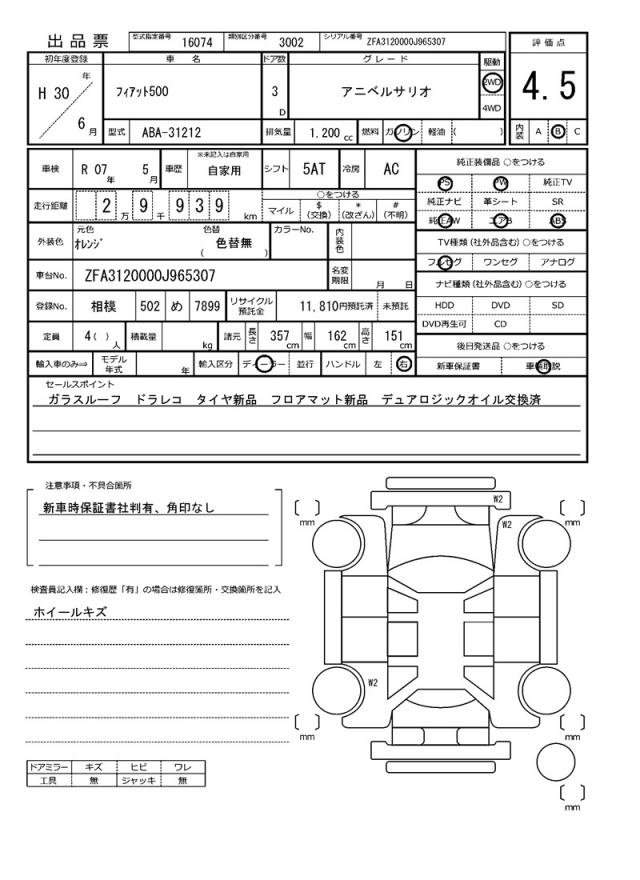 出品票 型式指定番号 16074 類別区分番号 3002 シリアル番号 ZFA3120000J965307
初年度登録 車 名 ドア数 グレード 駆動 評価点
H 30 年 6 月 フィアット500 3 D アニベルサリオ 2WD 4WD 4.5
型式 ABA-31212 排気量 1.200 cc 燃料 ガソリン 軽油 ( ) 内装 A B C
車検 R 07 年 5 月 車歴 ※未記入は自家用 自家用 シフト 5AT 冷房 AC
純正装備品 ○をつける
PS PW 純正TV
純正ナビ 革シート SR
純正AW エアB ABS
走行距離 2 万 9 千 9 3 9 km ○をつける
マイル $ (交換) * (改ざん) # (不明)
外装色 元色 オレンジ 色替 色替無 ( ) カラーNo. 内装色
TV種類 (社外品含む) ○をつける
フルセグ ワンセグ アナログ
車台No. ZFA3120000J965307 名変期限 月 日
ナビ種類 (社外品含む) ○をつける
HDD DVD SD
DVD再生可 CD
登録No. 相模 502 め 7899 リサイクル預託金 11,810円預託済 未預託
定員 4( ) 人 積載量 kg 諸元 長さ 357 cm 幅 162 cm 高さ 151 cm
後日発送品 ○をつける
新車保証書 車輌取説
輸入車のみ⇒ モデル年式 年 輸入区分 ディーラー 並行 ハンドル 左 右
セールスポイント
ガラスルーフ ドラレコ タイヤ新品 フロアマット新品 デュアロジックオイル交換済
注意事項・不具合箇所
新車時保証書社判有、角印なし
検査員記入欄:修復歴「有」の場合は修復箇所・交換箇所を記入
ホイールキズ
W2
[ ] mm W2 [ ] mm
W2
[ ] mm [ ] mm
[ ] mm
ドアミラー キズ ヒビ ワレ
工具 無 ジャッキ 無